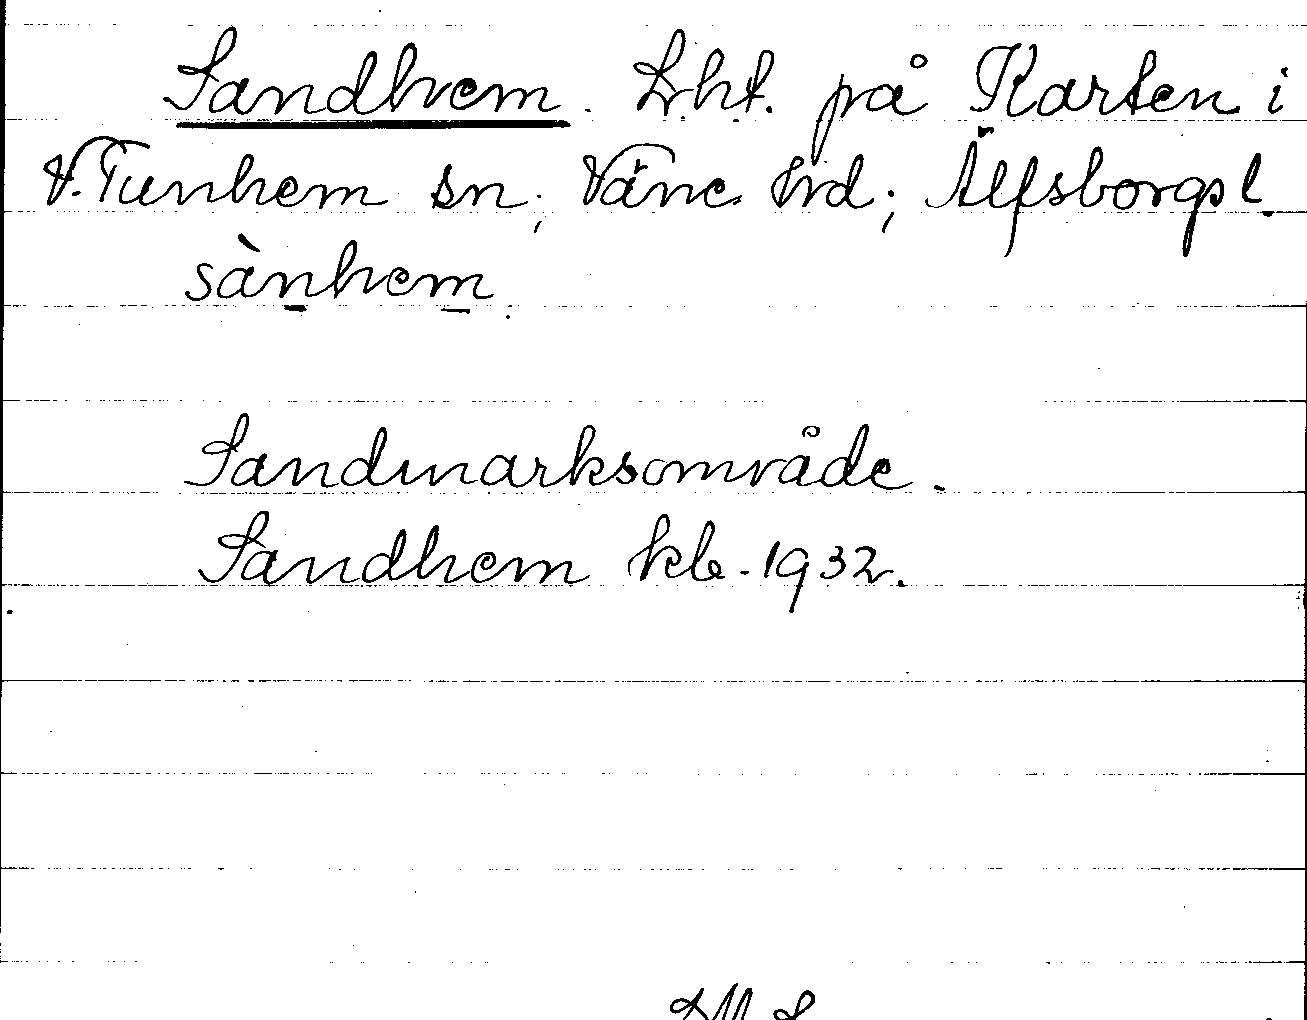 Sandhem. Lht. på Karten i
V. Tunhem sn; Väne hrd; Älfsborgs l.
sànhem.
Sandmarksområde.
Sandhem kb. 1932.